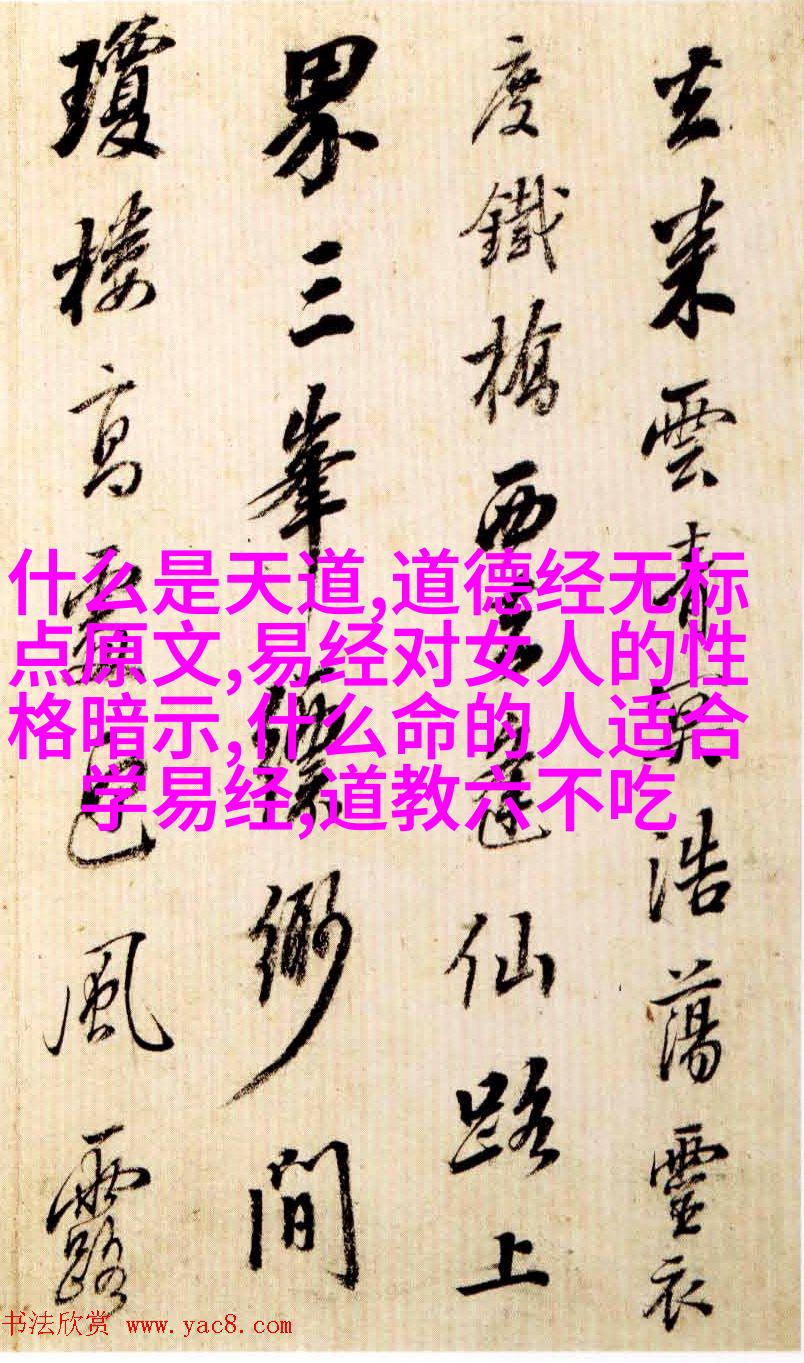 去来雲青冥浩蕩靈衣
度鐵橋西玄是達仙路上
界三峯縹緲間
瓊樓高處邑風露
什么是天道,道德经无标
点原文,易经对女人的性
格暗示,什么命的人适合
学易经,道教六不吃
书法欣赏 www.yac8.com